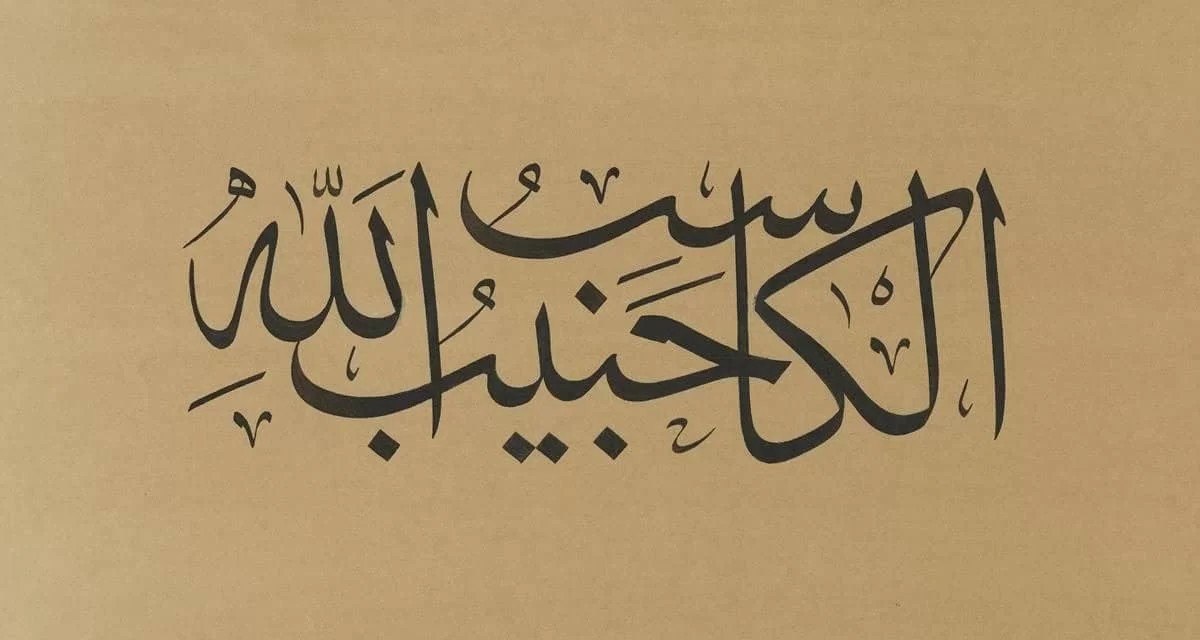 الْكَاسِبُ حَبِيبُ اللّٰهِ